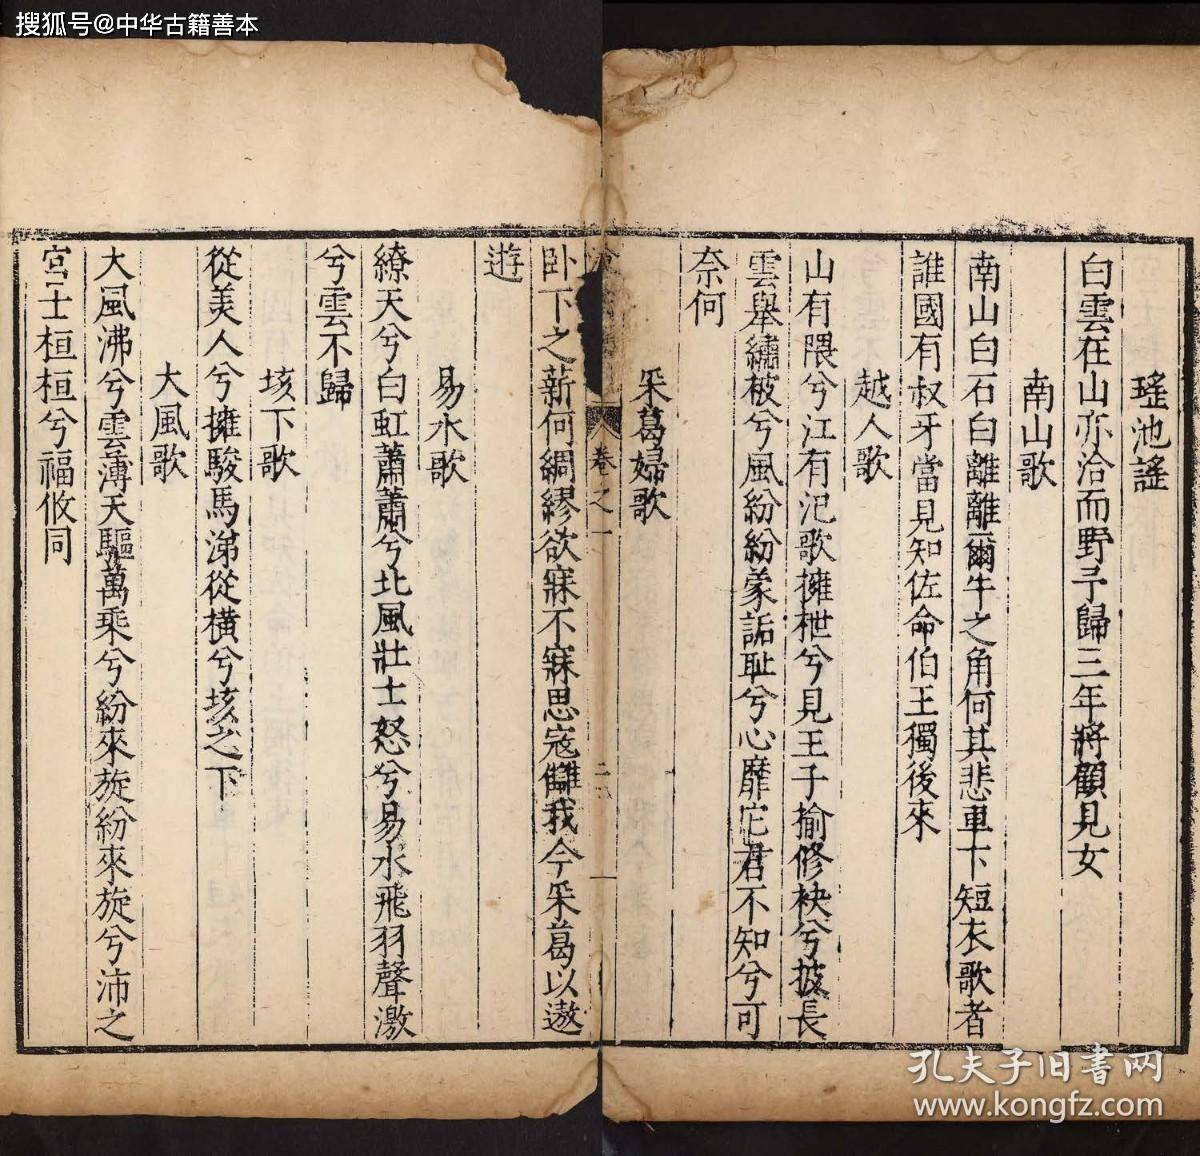 搜狐号@中华古籍善本
瑤池謠
白雲在山亦洽而野予歸三年將顧見女
南山歌
南山白石白離離爾牛之角何其悲車下短衣歌者
誰國有叔牙當見知佐命伯王獨後來
越人歌
山有隈兮江有汜歌擁枻兮見王子揄修袂兮披長
雲舉繡被兮風紛紛蒙詬耻兮心靡它君不知兮可
奈何
采葛婦歌
卷之一
二
卧下之薪何綢繆欲寐不寐思寇讎我今采葛以遨
遊
易水歌
繚天兮白虹蕭蕭兮北風壯士怒兮易水飛羽聲激
兮雲不歸
垓下歌
從美人兮擁駿馬涕從橫兮垓之下
大風歌
大風沸兮雲薄天驅萬乘兮紛來旋紛來旋兮沛之
宮士桓桓兮福攸同
孔夫子旧书网
www.kongfz.com